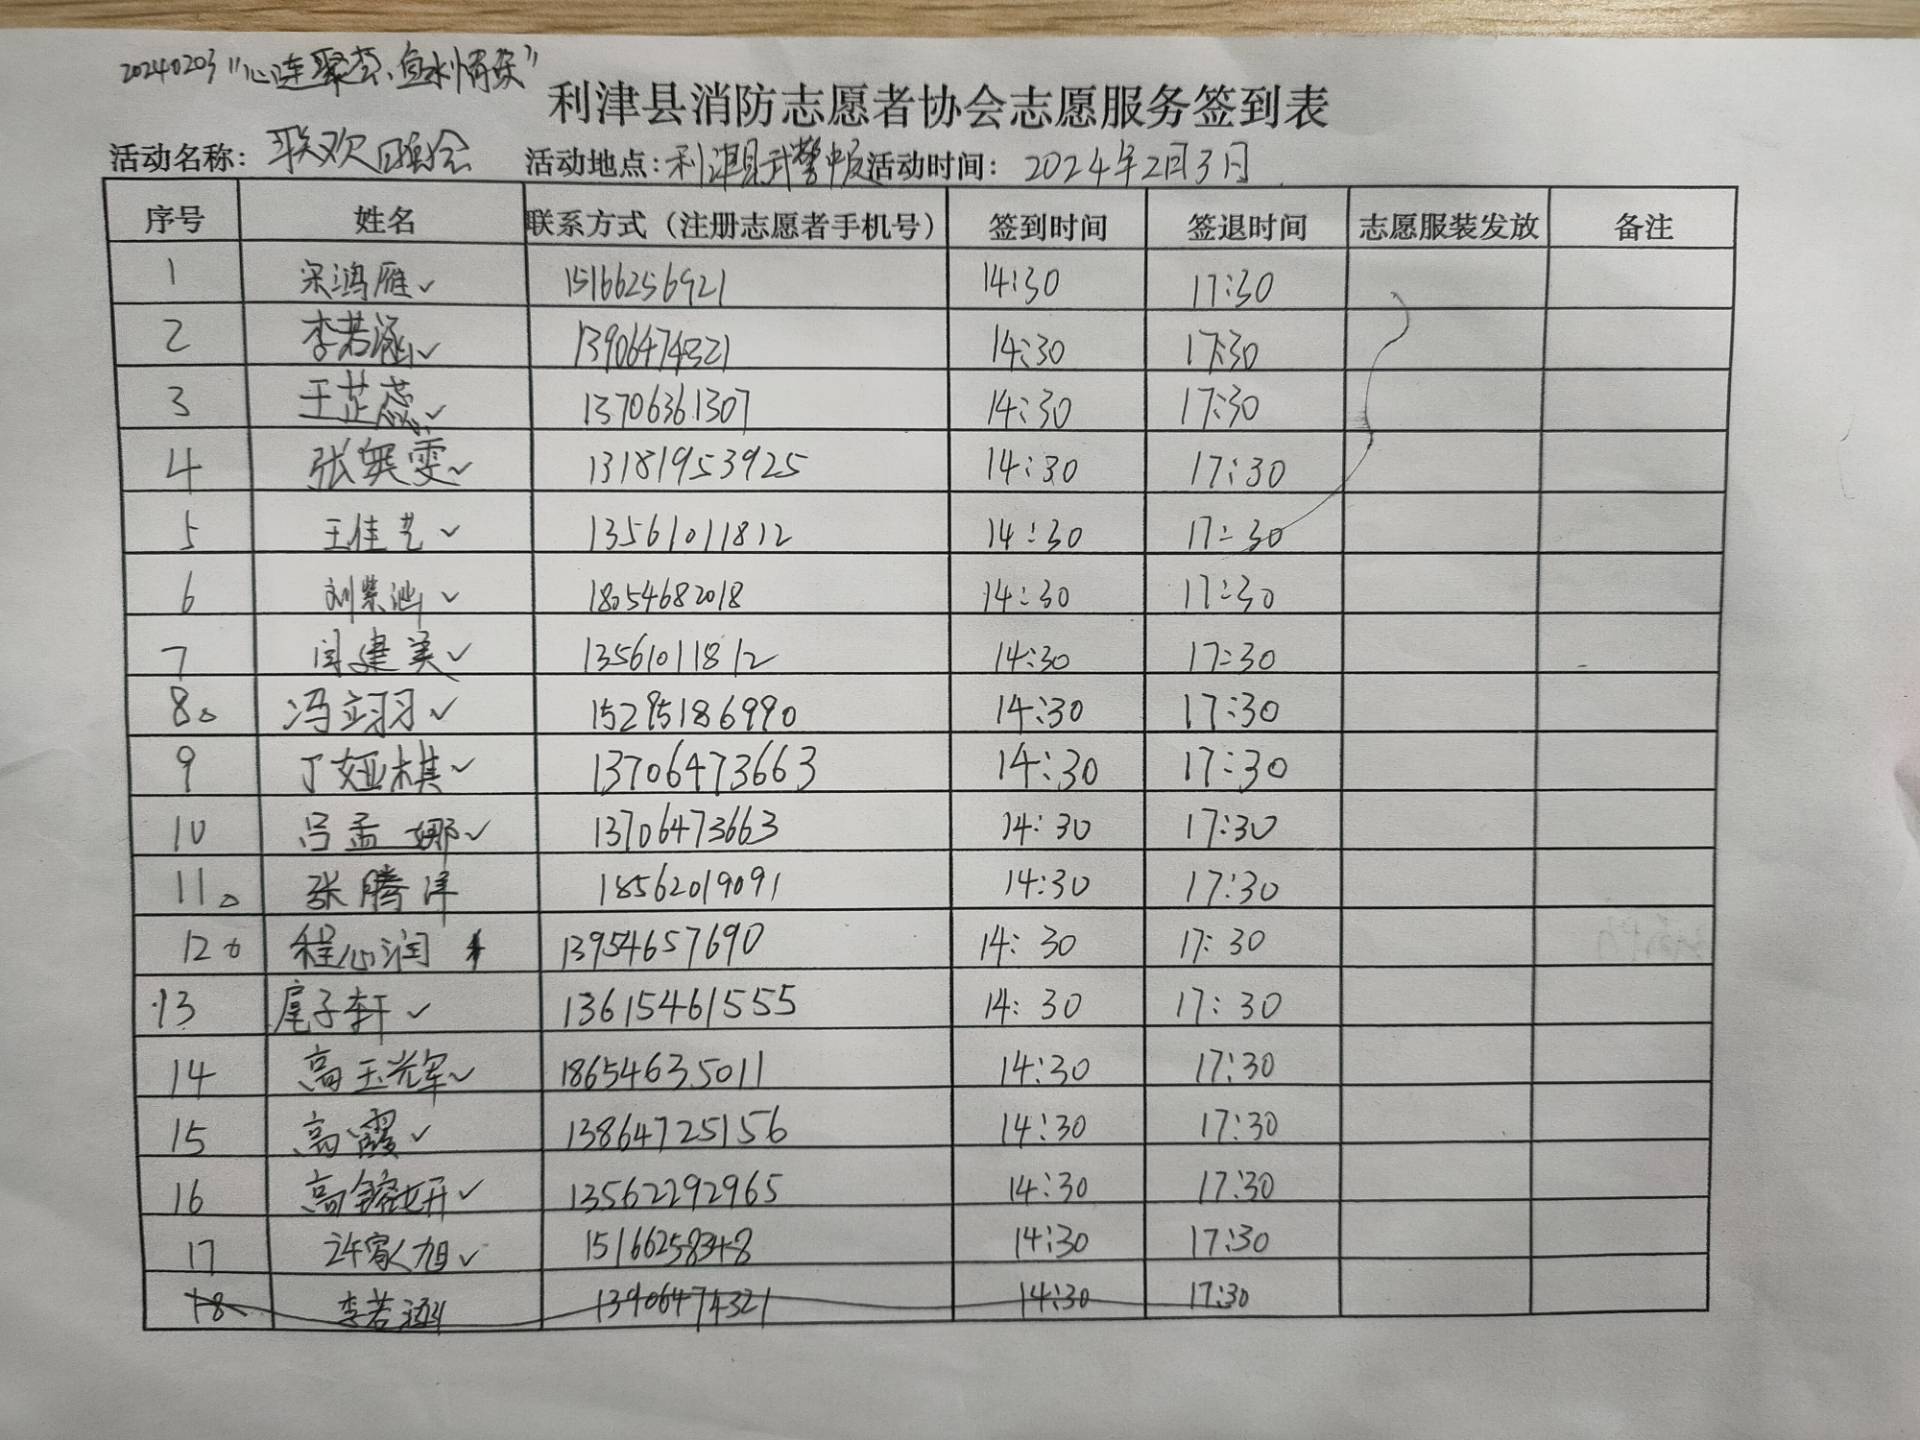 20240203"心连聚荟、鱼水情深"
利津县消防志愿者协会志愿服务签到表
活动名称: 联欢晚会 活动地点:利津县武警中队 活动时间: 2024年2月3日
序号 姓名 联系方式（注册志愿者手机号） 签到时间 签退时间 志愿服装发放 备注
1 宋鸿雁✓ 15166256921 14:30 17:30
2 李若涵✓ 13906474321 14:30 17:30
3 王芷蕊✓ 13706361307 14:30 17:30
4 张奥雯✓ 13181953925 14:30 17:30
5 王佳艺✓ 13561011812 14:30 17:30
6 刘紫✓ 18054682018 14:30 17:30
7 闫建美✓ 13561011812 14:30 17:30
8△ 冯立羽✓ 15295186990 14:30 17:30
9 丁娅棋✓ 13706473663 14:30 17:30
10 吕孟娜✓ 13706473663 14:30 17:30
11△ 张腾洋 18562019091 14:30 17:30
12 程心润 13954657690 14:30 17:30
13 尾子轩✓ 13615461555 14:30 17:30
14 高玉光军✓ 18654635011 14:30 17:30
15 高霞✓ 13864725156 14:30 17:30
16 高镕妍✓ 13562292965 14:30 17:30
17 许家旭✓ 15166258348 14:30 17:30
18 李若涵 13906474321 14:30 17:30